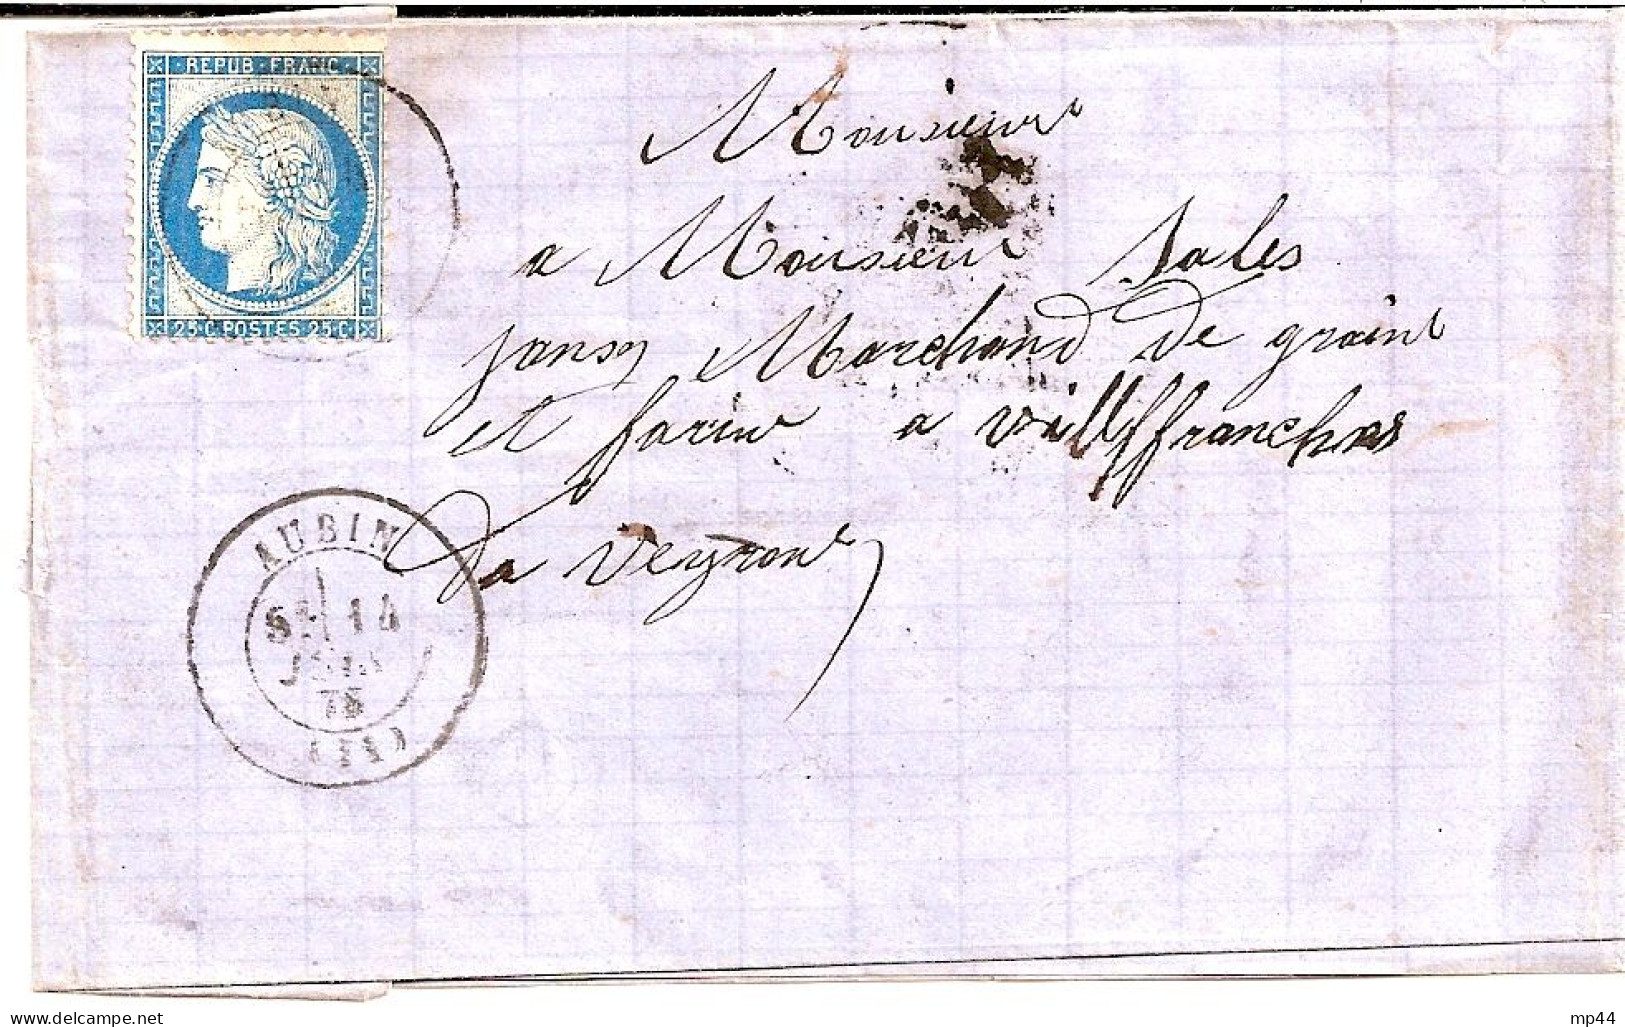 REPUB · FRANC
25·C POSTES 25·C
Monsieur
a Monsieur Sales
jansy Marchand de grain
et farine a villffranches
da veyron
AUBIN
14
75
(11)
www.delcampe.net
mp44